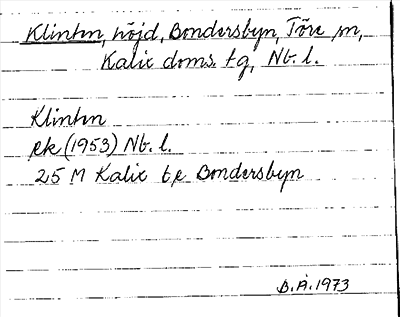 Klinten, höjd, Bondersbyn, Töre sn,
Kalix doms. tg, Nb. l.
Klinten
ek (1953) Nb. l.
25 M Kalix t.e Bondersbyn
B. Å. 1973